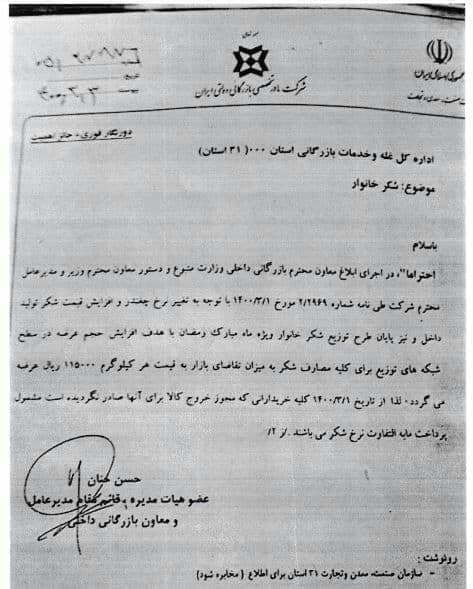 جمهوری اسلامی ایران
شرکت مادر تخصصی بازرگانی دولتی ایران
دورنگار فوری - حائز اهمیت
اداره کل غله و خدمات بازرگانی استان ۰۰۰( ۳۱ استان)
موضوع: شکر خانوار
باسلام
احتراما"، در اجرای ابلاغ معاون محترم بازرگانی داخلی وزارت متبوع و دستور معاون محترم وزیر و مدیرعامل
محترم شرکت طی نامه شماره ۲/۲۹۶۹ مورخ ۱۴۰۰/۳/۱ با توجه به تغییر نرخ چغندر و افزایش قیمت شکر تولید
داخل و نیز پایان طرح توزیع شکر خانوار ویژه ماه مبارک رمضان با هدف افزایش حجم عرضه در سطح
شبکه های توزیع برای کلیه مصارف شکر به میزان تقاضای بازار به قیمت هر کیلوگرم ۱۱۵۰۰۰ ریال عرضه
می گردد. لذا از تاریخ ۱۴۰۰/۳/۱ کلیه خریدارانی که مجوز خروج کالا برای آنها صادر نگردیده است مشمول
پرداخت مابه التفاوت نرخ شکر می باشند ./ز ۲/
حسن حنان
عضو هیات مدیره ، قائم مقام مدیرعامل
و معاون بازرگانی داخلی
رونوشت :
- سازمان صنعت، معدن وتجارت ۳۱ استان برای اطلاع ( مخابره شود)